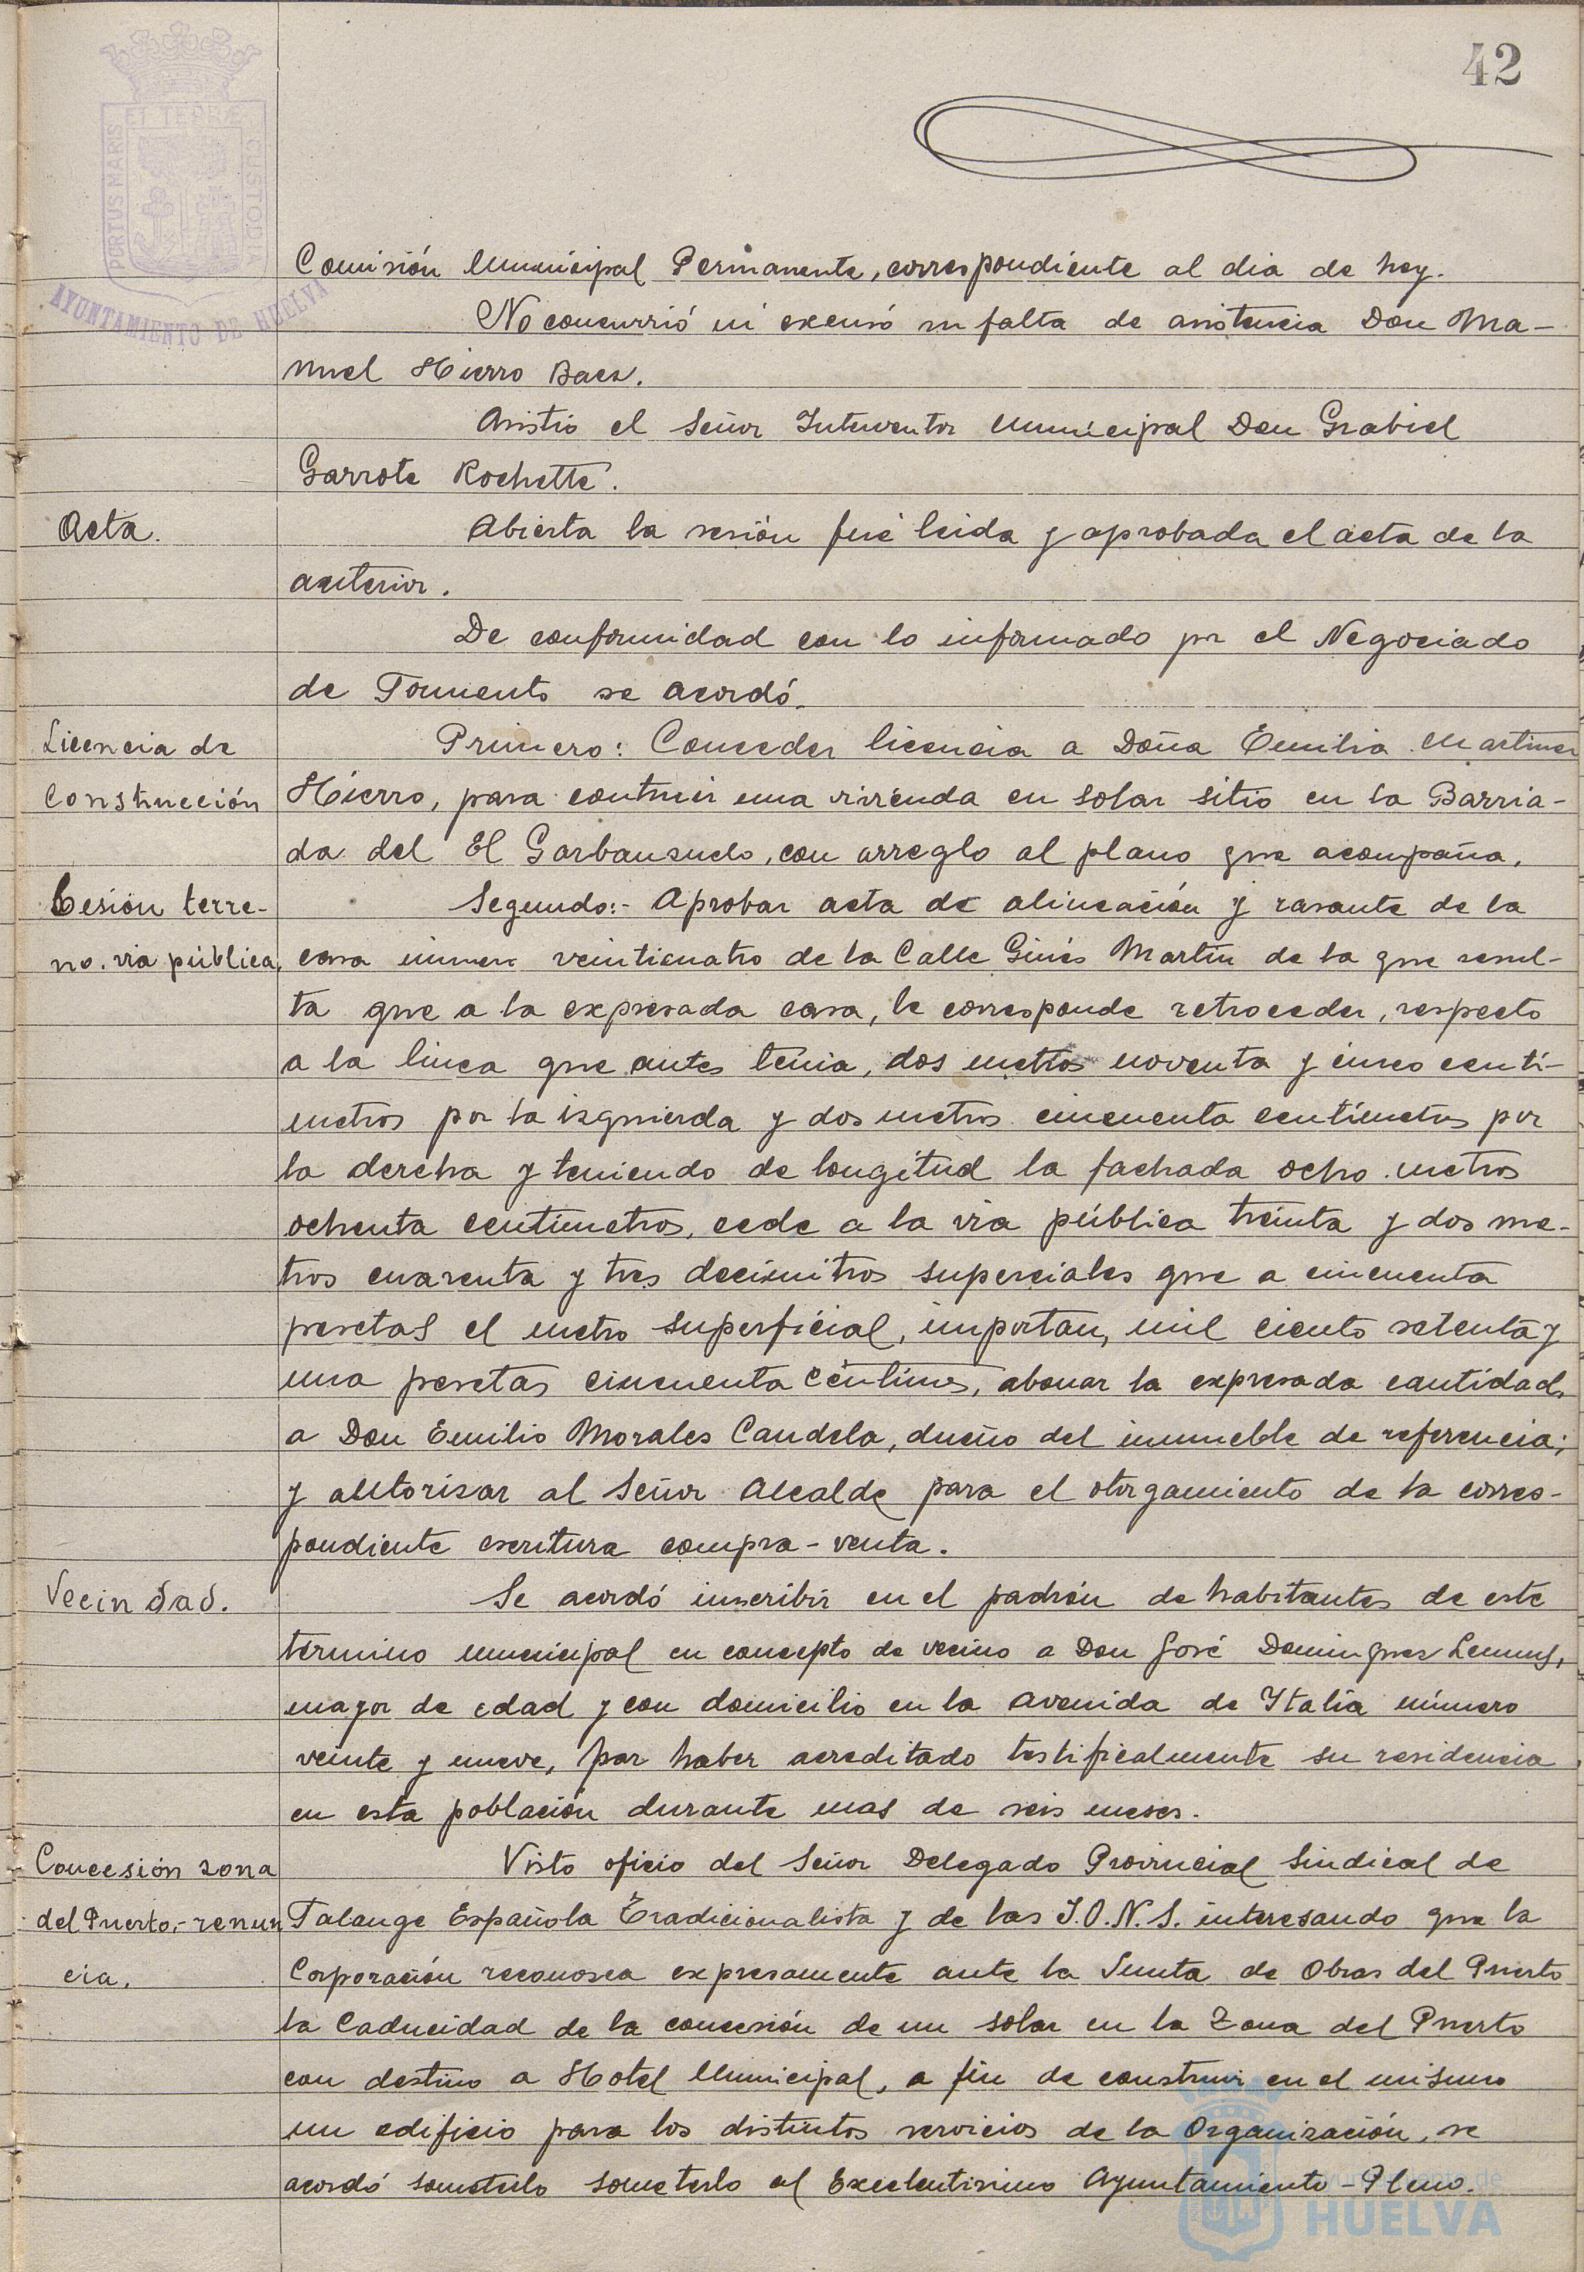 42
PORTUS MARIS ET TERRAE CUSTODIA
AYUNTAMIENTO DE HUELVA
Comisión Municipal Permanente, correspondiente al dia de hoy.
No concurrió ni excusó su falta de asistencia Don Ma-
nuel Hierro Baez.
Asistio el Señor Interventor Municipal Don Grabiel
Garrote Rochette.
Acta.
Abierta la sesión fué leida y aprobada el acta de la
anterior.
De conformidad con lo informado por el Negociado
de Fommento se acordó.
Licencia de
Construcción
Primero: Conceder licencia a Doña Emilia Martinez
Hierro, para contruir una vivienda en solar sitio en la Barria-
da del El Garbanzuelo, con arreglo al plano que acompaña.
Cesión terre-
no. via pública.
Segundo:- Aprobar acta de alineación y rasante de la
casa número veinticuatro de la Calle Ginés Martín de la que resul-
ta que a la expresada casa, le corresponde retroceder, respecto
a la linea que antes tenia, dos metros noventa y cinco centí-
metros por la izquierda y dos metros cincuenta centímetros por
la derecha y teniendo de longitud la fachada ocho metros
ochenta centímetros, cede a la via pública treinta y dos me-
tros cuarenta y tres decimitros superciales que a cincuenta
pesetas el metro superficial, importan, mil ciento setenta y
una pesetas cincuenta céntimos, abonar la expresada cantidad,
a Don Emilio Morales Candela, dueño del inmueble de referencia;
y autorizar al Señor Alcalde para el otorgamiento de la corres-
pondiente escritura compra-venta.
Vecindad.
Se acordó inscribir en el padrón de habitantes de este
término municipal en concepto de vecino a Don José Dominguez Lemus,
mayor de edad y con domicilio en la Avenida de Italia número
veinte y nueve, por haber acreditado testificalmente su residencia
en esta población durante mas de seis meses.
Concesión zona
del Puerto.- renun
cia.
Visto oficio del Señor Delegado Provincial Sindical de
Falange Española Tradicionalista y de las J.O.N.S. interesando que la
Corporación reconozca expresamente ante la Junta de Obras del Puerto
la Caducidad de la concesión de un solar en la Zona del Puerto
con destino a Hotel Municipal, a fin de construir en el mismo
un edificio para los distintos servicios de la Organización, se
acordó someterlo someterlo al Excelentisimo Ayuntamiento-Pleno.
Ayuntamiento de
HUELVA